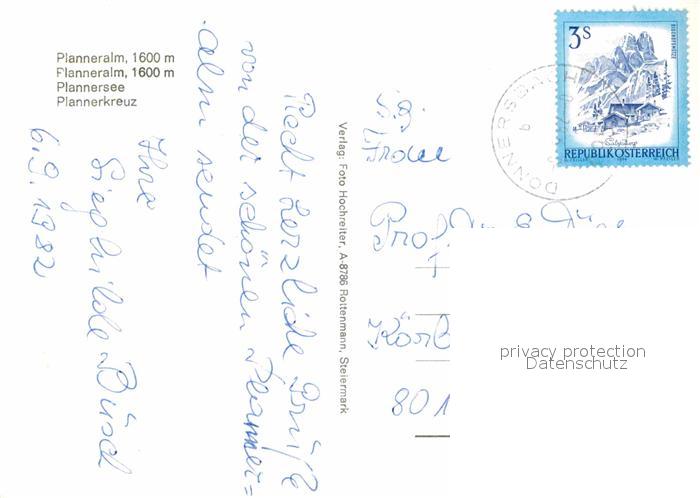 Planneralm, 1600 m
Planneralm, 1600 m
Plannersee
Plannerkreuz
Recht herzliche Grüße
von der schönen Planner=
alm sendet
Ihre
Sieghilde
6.9.1982
Verlag: Foto Hochreiter, A-8786 Rottenmann, Steiermark
3 S
REPUBLIK ÖSTERREICH
DONNERSBACH
S.g.
Frau
Prof.
801
privacy protection
Datenschutz